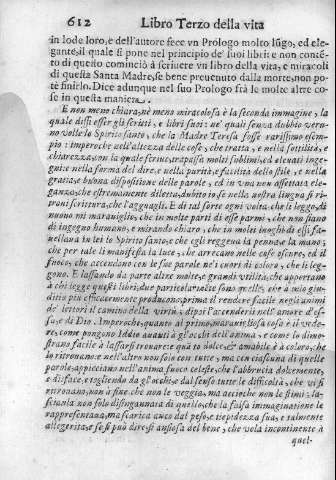 612 Libro Terzo della vita
in lode loro, e dell'autore fece vn Prologo molto lūgo, ed ele-
gante, il quale si pone nel principio de' suoi libri: e non cōtē-
to di questo cominciò à scriuere vn libro della vita, e miracoli
di questa Santa Madre, se bene preuenuto dalla morte, non po-
tè finirlo. Dice adunque nel suo Prologo frà le molte altre co-
se in questa maniera.
E non meno chiara, nè meno miracolosa è la seconda immagine, la
quale dissi esser gli scritti, e libri suoi: ne' quali senza dubbio ver-
no volle lo Spirito santo, che la Madre Teresa fosse rarissimo esem-
pio: imperoche nell'altezza delle cose, che tratta, e nella sottilità, e
chiarezza, con la quale scriue, trapassa molti sublimi, ed eleuati inge-
gni: e nella forma del dire, e nella purità, e facilità dello stile, e nella
gratia, e buona dispositione delle parole, ed in vna non affettata ele-
ganza, che estremamente diletta, dubito io se nella nostra lingua si ri-
troui scrittura, che l'agguagli. E di tal sorte ogni volta che li leggo, di
nuouo mi marauiglio, che in molte parti di esse parmi, che non siano
di ingegno humano, e mirando chiaro, che in molti luoghi di essi fa-
uellaua in lei lo Spirito santo, e che egli reggeua la penna, e la mano;
che per tale li manifesta la luce, che arrecano nelle cose oscure, ed il
fuoco, che accendono con le sue parole ne' cuori di coloro, che li leg-
gono. E lassando da parte altre molte, e grandi vtilità, che apportano
à chi legge questi libri; due particolarmēte sono quelle, che à mio giu-
ditio più efficacemente producono, prima il rendere facile negli animi
de' lettori il camino della virtù; dipoi l'accenderli nell'amore d'es-
sa, e di Dio. Imperoche, quanto al primo, marauigliosa cosa è il vede-
re, come pongono Iddio auanti à gl'occhi dell'anima, e come lo dimo-
strano facile à lassarsi trouare: e quā dolce, & amabile è à coloro, che
lo ritrouano: e nell'altro non solo con tutte, ma con ciascuna di quelle
parole, appicciano nell'anima fuoco celeste, che l'abbrucia dolcemente,
e disface, e togliendo da gl'occhi, e dal senso tutte le difficoltà, che vi si
ritrouano, non à fine che non le veggia, ma acciòche non le stimi: la-
sciandola non solo disingannata di quello, che la falsa immaginatione le
rappresentaua, ma scarica anco dal peso, e tiepidezza sua, e talmente
allegerita, e se si può dire, si ansiosa del bene, che vola incontinente à
quel-